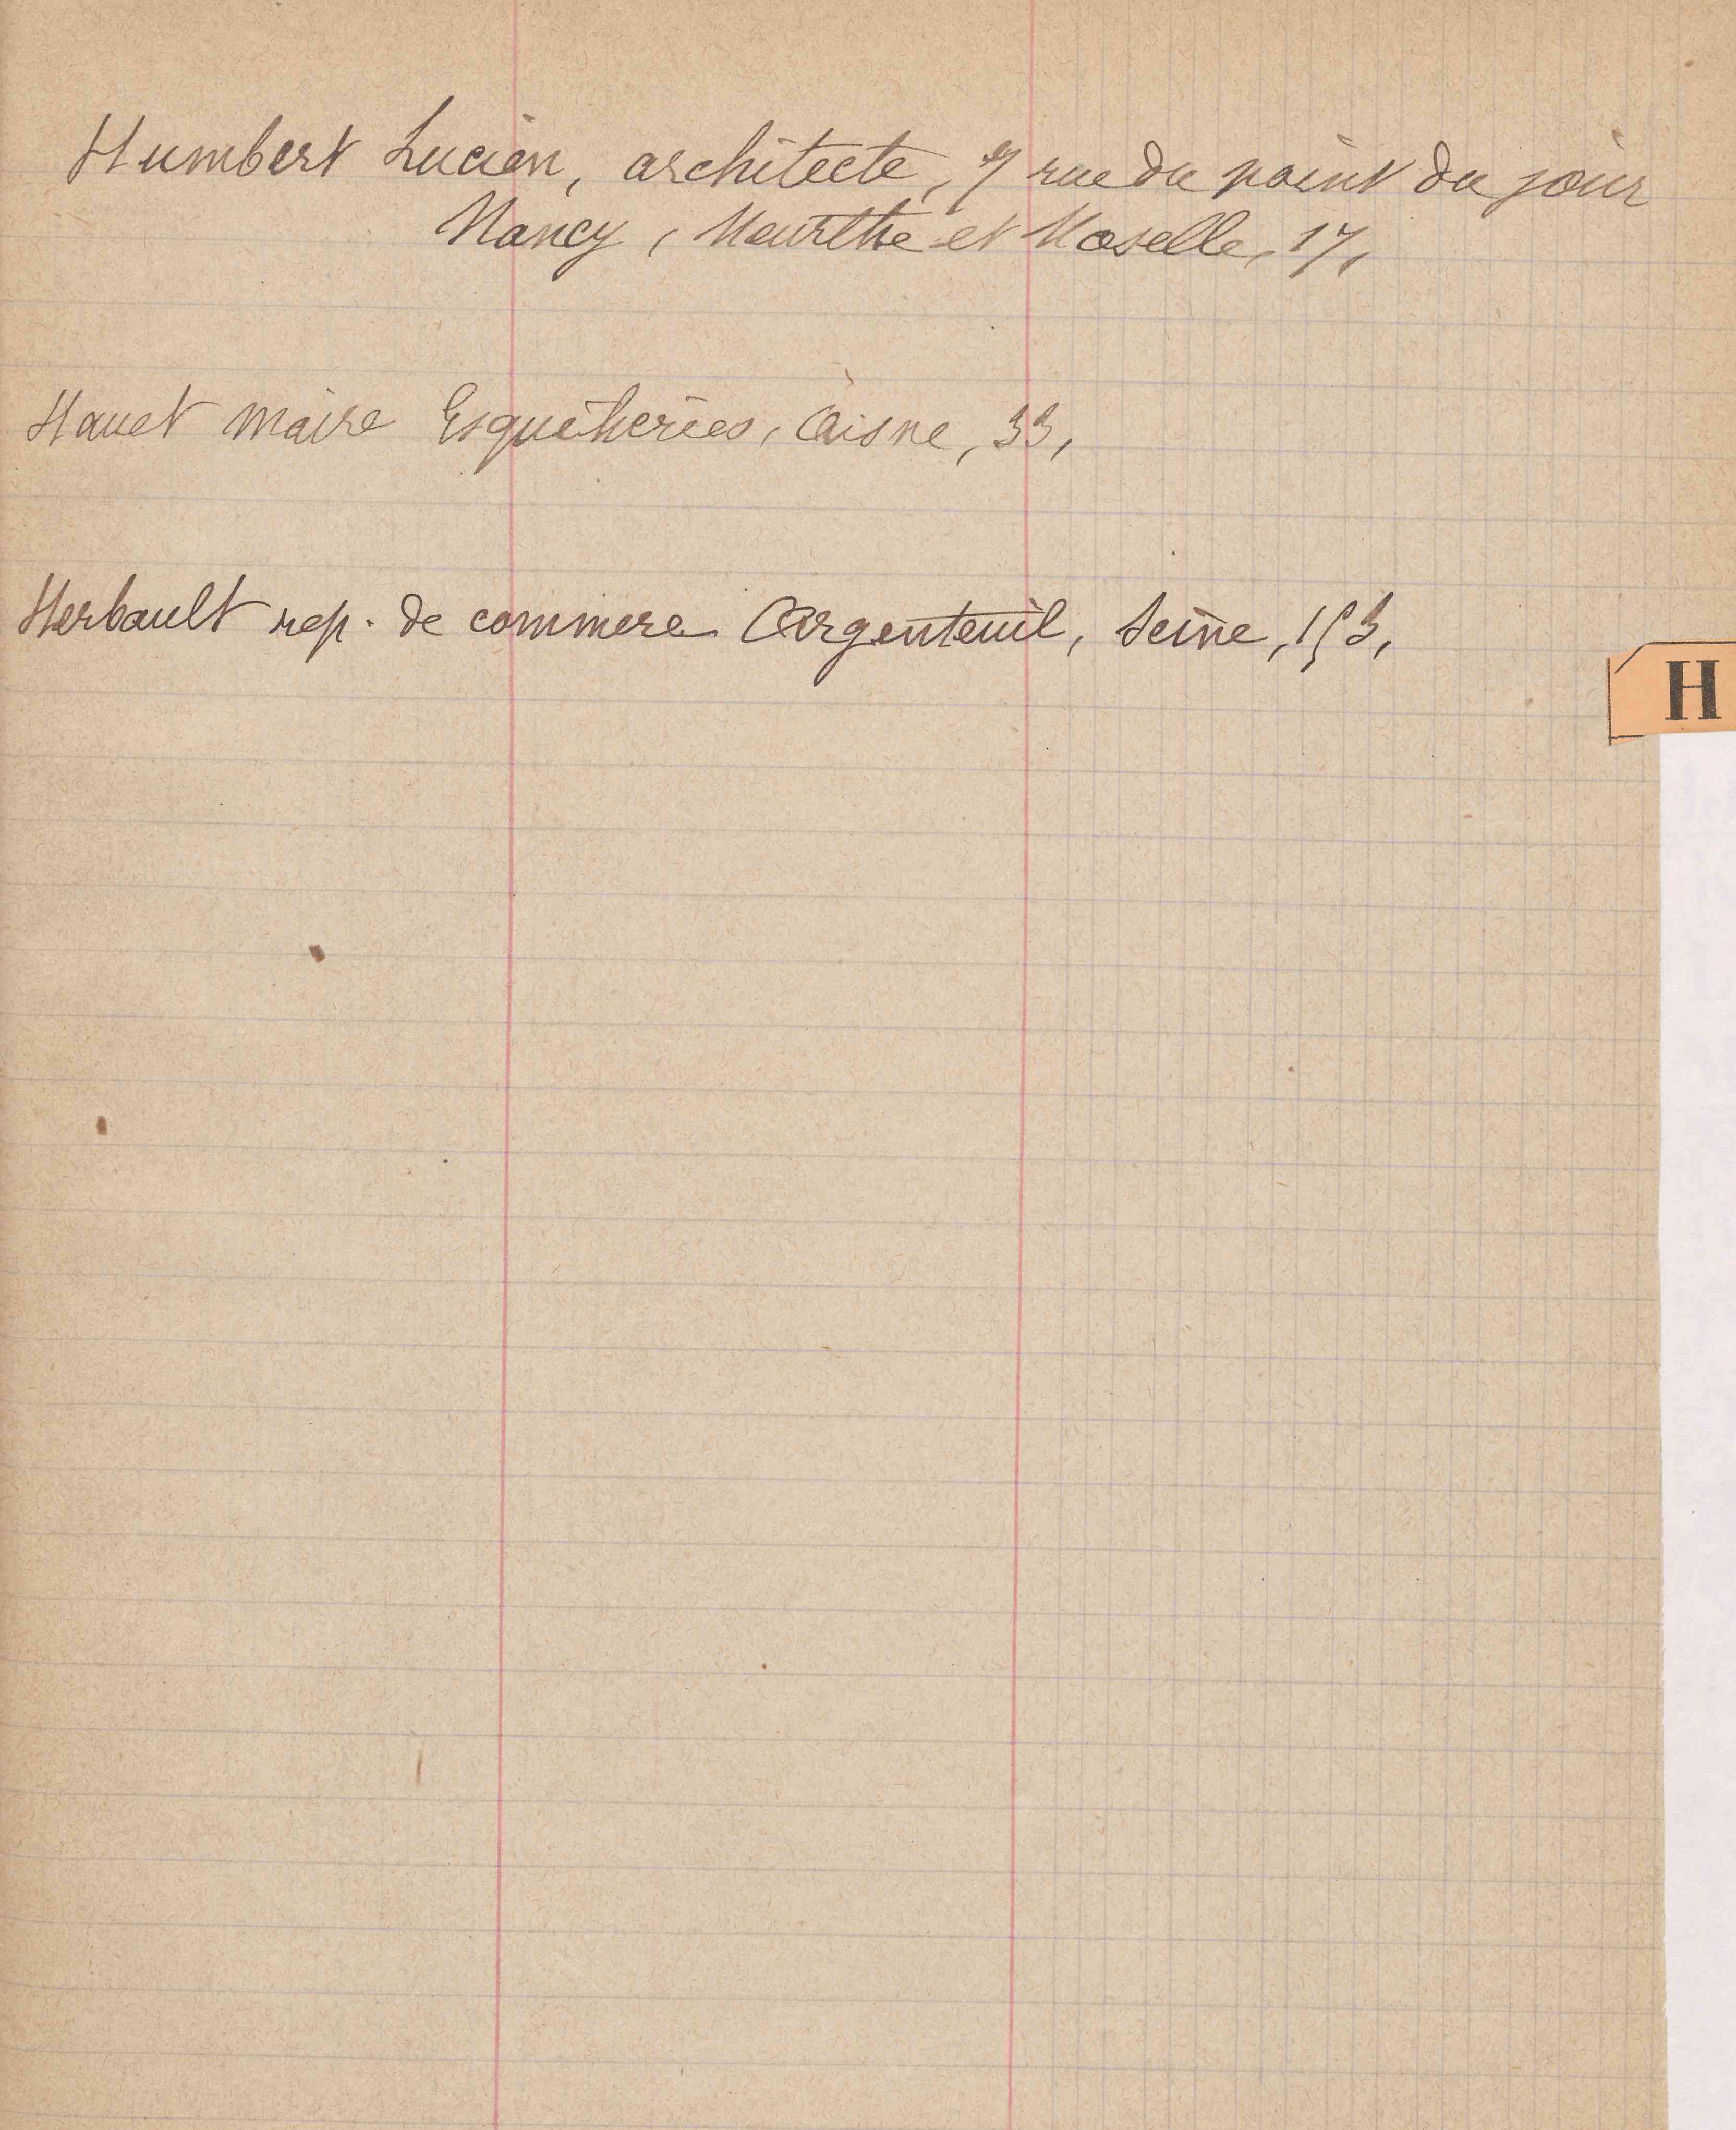 Humbert Lucien, architecte, 7 rue du point du jour
Nancy, Meurthe et Moselle, 17,
Hauet maire Esquéheries, Aisne, 33,
Herbault rep. de commerce Argenteuil, Seine, 153,
H